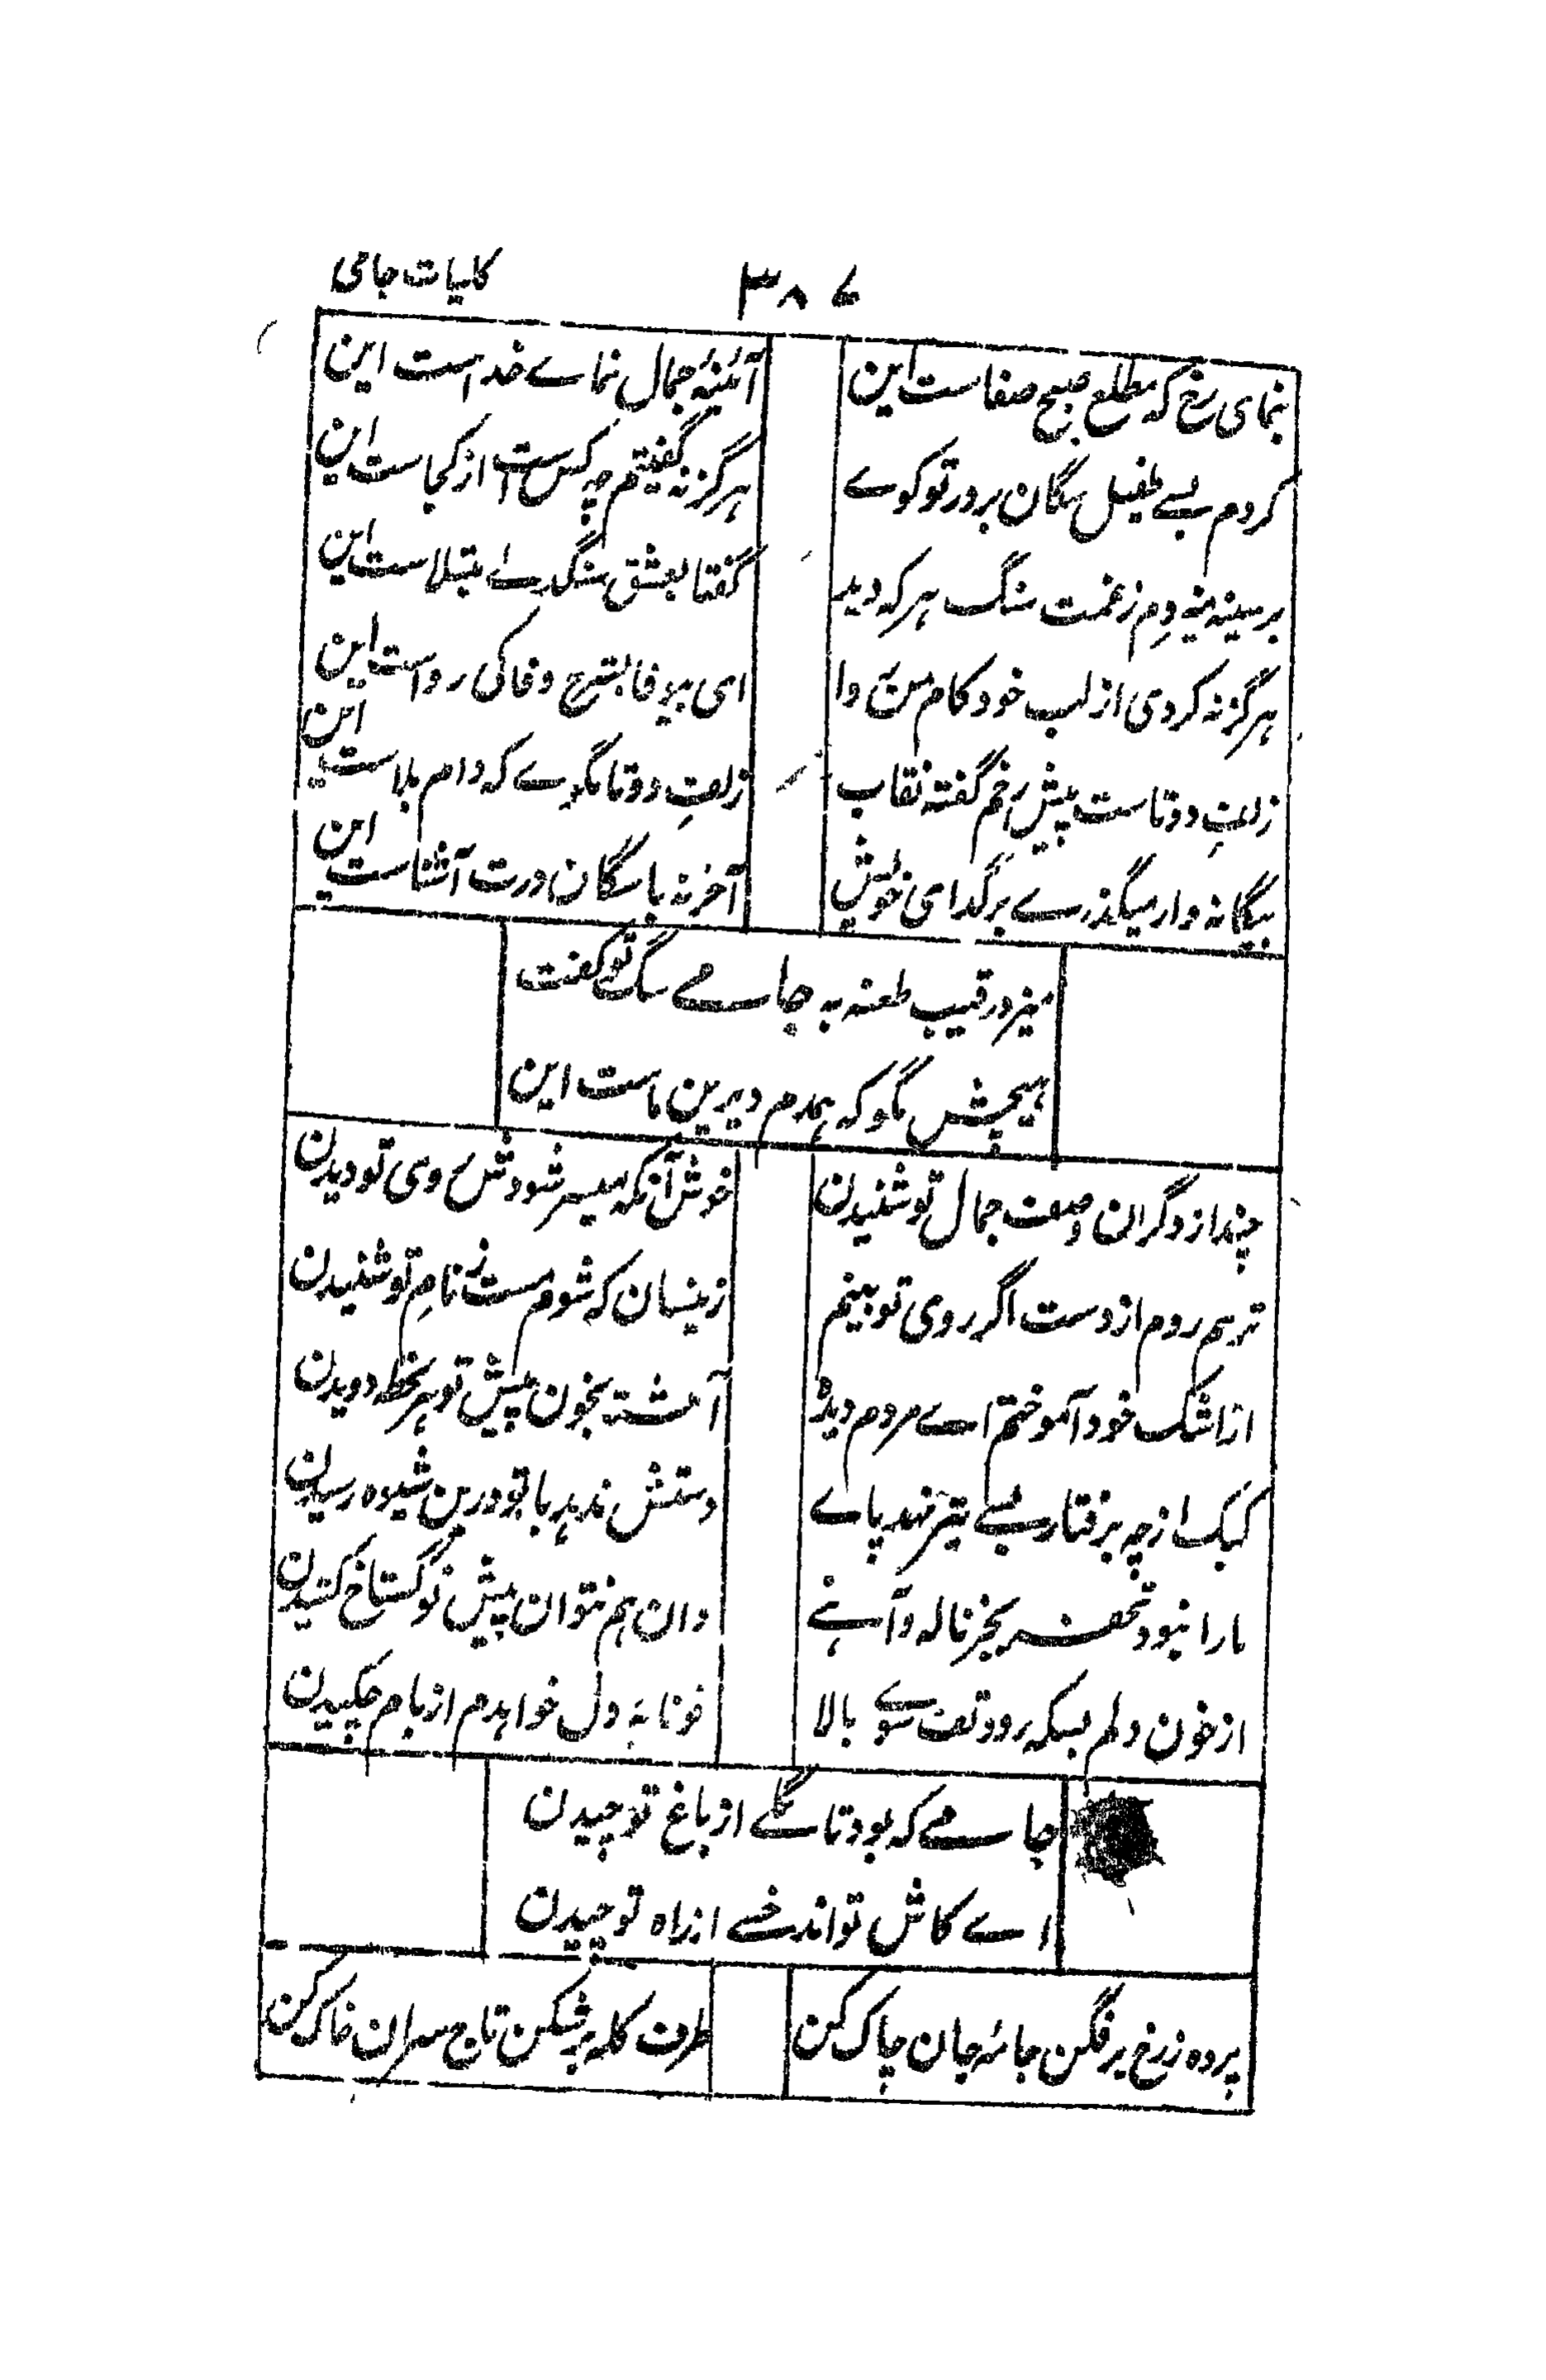 کلیات جامی
۳۸۷
بنمای رخ که مطلع صبح صفاست این
آئینۂ جمال نمائے خداست این
کردم بسے طفیل سگان بر در تو کوے
هرگز نه گفتیم چه کس ست از کجاست این
بر سینه میزدم زغمت سنگ هر که دید
گفتا بعشق سنگدلے مبتلاست این
هرگز نه کردی از لب خود کام من روا
ای بیوفا بشرح وفا کی رواست این
زلفِ دوتاست پیش رخم گفته نقاب
زلفِ دوتا مگوے که دام بلاست این
بیگانه وار میگذرے بر گدای خویش
آخر نه با سگان درت آشناست این
میزد رقیب طعنه به جامے سگ تو گفت
هیچش مگو که همدم دیرین ماست این
چند از دگران وصف جمال تو شنیدن
خوش آنکه میسر شودش روی تو دیدن
ترسم روم از دست اگر روی تو بینم
زینسان که شوم مست ز نامِ تو شنیدن
از اشک خود آموختم اے مردم دیده
آغشته بخون پیش تو هر لحظه دویدن
کبک ارچه برفتار بسے تیز نهد پاے
دستش ندهد با تو درین شیوه رسیدن
ما را نبود تحفه بجز ناله و آهے
وان هم نتوان پیش تو گستاخ کشیدن
از خون دلم بسکه رود تف سوے بالا
خونابۂ دل خواهدم از بام چکیدن
جامے که بود تا گلے از باغ تو چیدن
اے کاش تواند خسے از راه تو چیدن
پرده ز رخ بر فگن جامۂ جان چاک کن
طرف کله بر شکن تاج سران خاک کن